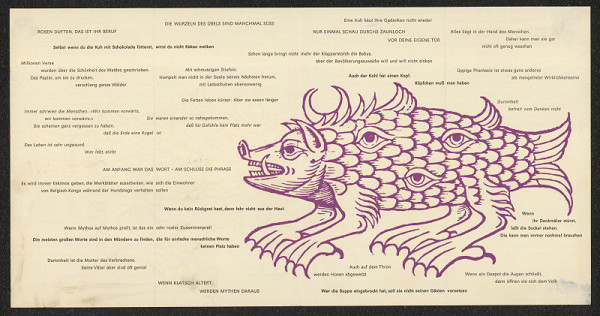 DIE WURZELN DES ÜBELS SIND MANCHMAL SÜSS
Eine Kuh käut ihre Gedanken nicht wieder
ROSEN DUFTEN, DAS IST IHR BERUF
NUR EINMAL SCHAU DURCHS ZAUNLOCH
VOR DEINE EIGENE TÜR
Alles liegt in der Hand des Menschen,
Daher kann man sie gar
nicht oft genug waschen
Selbst wenn du die Kuh mit Schokolade fütterst, wirst du nicht Kakao melken
Schon lange bringt nicht mehr der Klapperstorch die Babys,
aber der Bevölkerungszuwachs will und will nicht sinken
Millionen Verse
wurden über die Schönheit des Waldes geschrieben.
Das Papier, um sie zu drucken,
verschlang ganze Wälder
Mit schmutzigen Stiefeln
trampelt man nicht in der Seele seines Nächsten herum,
mit Lackschuhen ebensowenig
Auch der Kohl hat einen Kopf.
Köpfchen muß man haben
Üppige Phantasie ist etwas ganz anderes
als mangelnder Wirklichkeitssinn
Die Farben leben kürzer. Aber sie essen länger
Immer schreien die Menschen: »Wir kommen vorwärts,
wir kommen vorwärts.«
Sie scheinen ganz vergessen zu haben,
daß die Erde eine Kugel ist
Die waren einander so nahegekommen,
daß für Gefühle kein Platz mehr war
Dummheit
befreit vom Denken nicht
Das Leben ist sehr ungesund.
Wer lebt, stirbt
AM ANFANG WAR DAS WORT – AM SCHLUSS DIE PHRASE
Es wird immer Eskimos geben, die Merkblätter ausarbeiten, wie sich die Einwohner
von Belgisch-Kongo während der Hundstage verhalten sollen
Wenn du kein Rückgrat hast, dann fahr nicht aus der Haut
Wenn
ihr Denkmäler stürzt,
laßt die Sockel stehen.
Die kann man immer nochmal brauchen
Wenn Mythos auf Mythos prallt, ist das ein sehr realer Zusammenprall
Die meisten großen Worte sind in den Mündern zu finden, die für einfache menschliche Worte
keinen Platz haben
Dummheit ist die Mutter des Verbrechens.
Seine Väter aber sind oft genial
Auch auf dem Thron
werden Hosen abgewetzt
Wenn ein Despot die Augen schließt,
dann öffnen sie sich dem Volk
WENN KLATSCH ALTERT,
WERDEN MYTHEN DARAUS
Wer die Suppe eingebrockt hat, soll sie nicht seinen Gästen vorsetzen